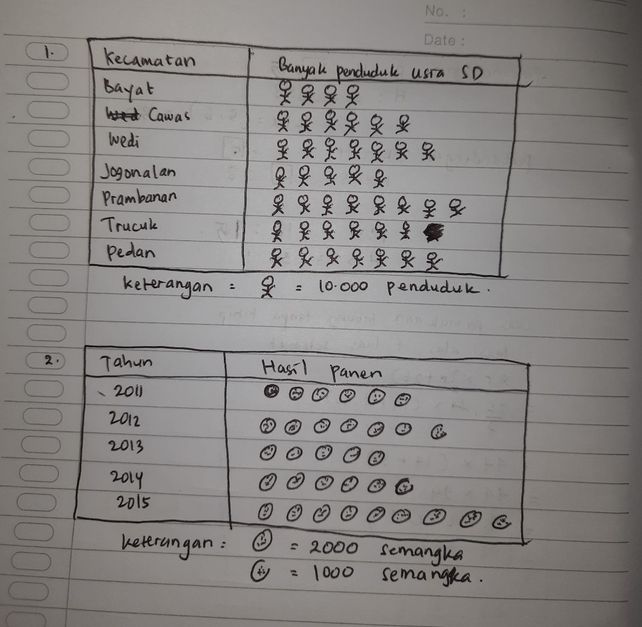 No. :
Date :
1.
Kecamatan Banyak penduduk usia SD
Bayat
Cawas
Wedi
Jogonalan
Prambanan
Trucuk
Pedan
Keterangan = = 10.000 penduduk.
2.
Tahun Hasil panen
2011
2012
2013
2014
2015
Keterangan : = 2000 semangka
= 1000 semangka.